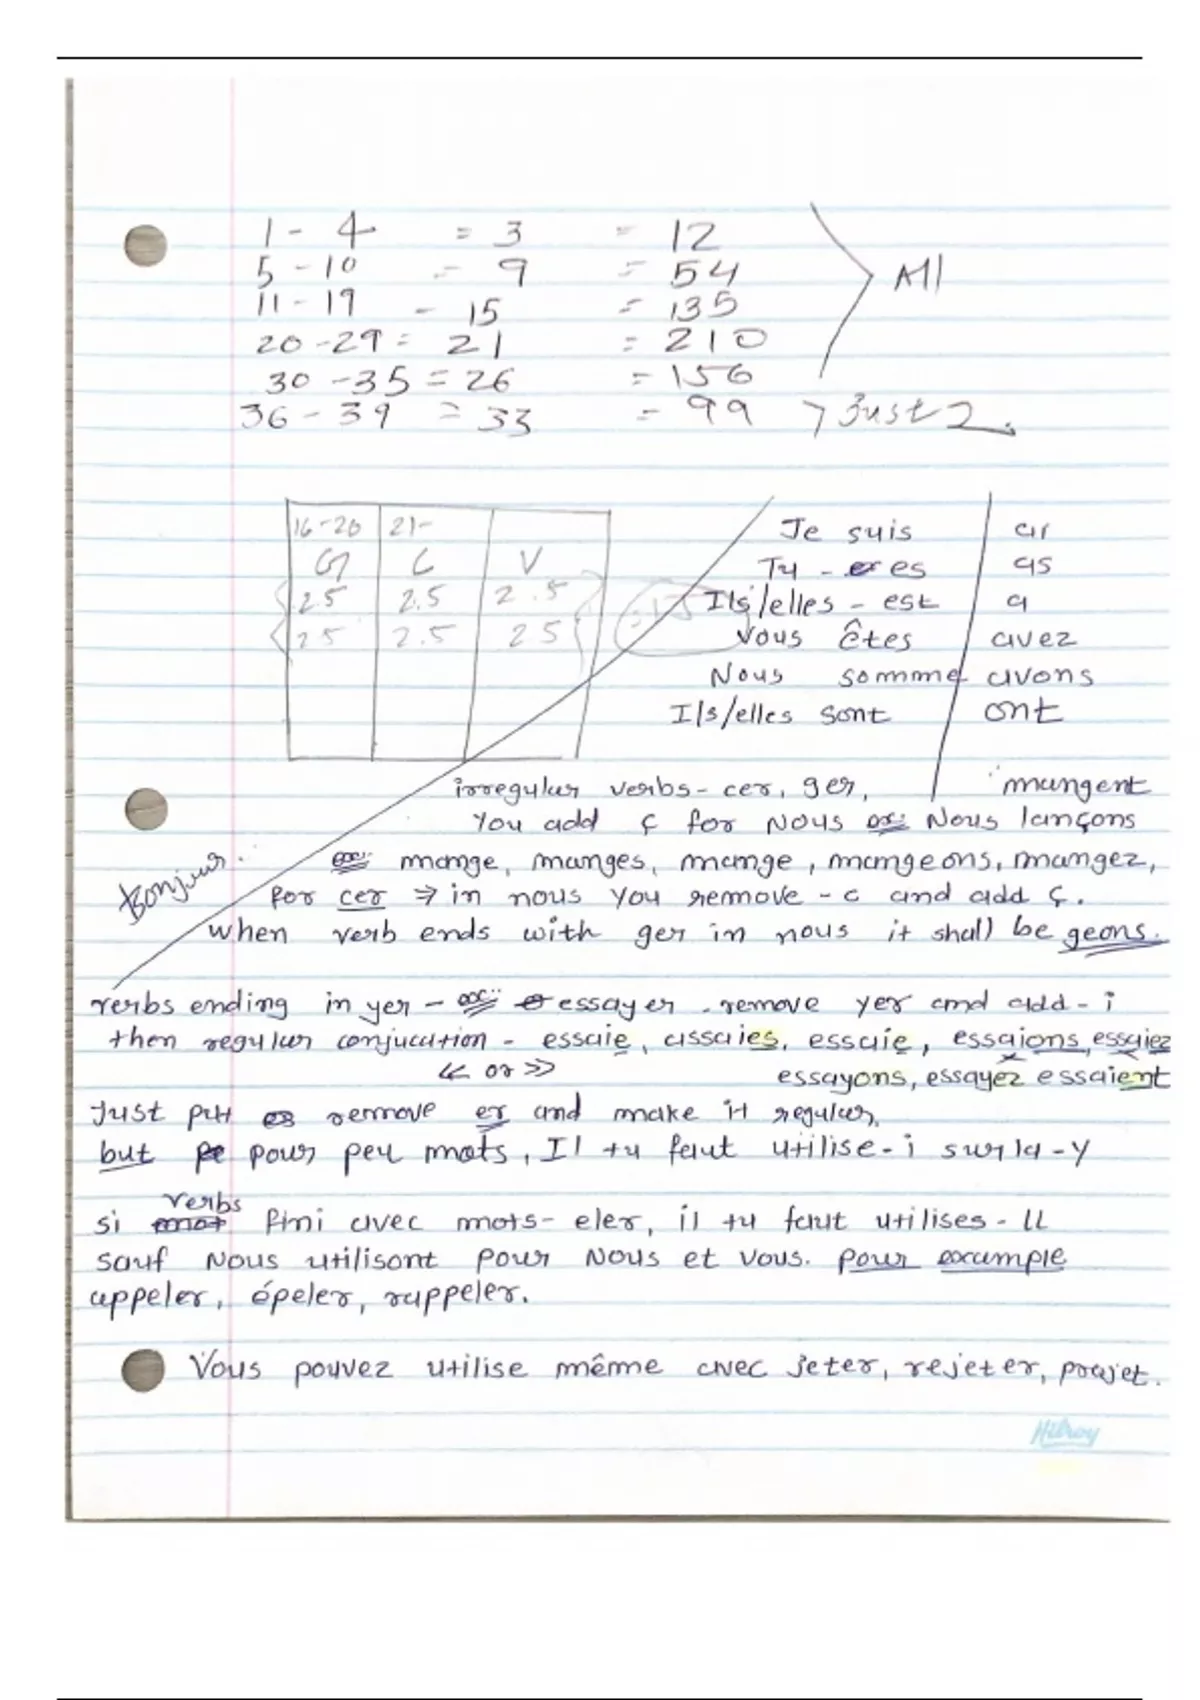 1 - 4 = 3 = 12
5 - 10 = 9 = 54
11 - 19 = 15 = 135
20 - 29 = 21 = 210
30 - 35 = 26 = 156
36 - 39 = 33 = 99 > Just 2.
All
16-20 21-
G C V
2.5 2.5 2.5
2.5 2.5 2.5 = 15
Je suis ai
Tu - es as
Ils/elles - est a
Vous êtes avez
Nous somme avons
Ils/elles sont ont
irregular verbs - cer, ger, mangent
You add ç for Nous ex: Nous lançons
Bonjour.
ex: mange, manges, mange, mangeons, mangez,
for cer ⇒ in nous you remove - c and add ç.
when verb ends with ger in nous it shall be geons.
verbs ending in yer - ex: essayer - remove yer and add - i
then regular conjucation - essaie, assaies, essaie, essaions, essaiez
<< or >> essayons, essayez essaient
Just put remove er and make it regular,
but pour peu mots, Il tu faut utilise - i sur la - y
si verbs fini avec mots - eler, il tu faut utilises - ll
sauf Nous utilisont pour Nous et vous. pour example
appeler, épeler, rappeler.
Vous pouvez utilise même avec jeter, rejeter, projet.
Hilroy